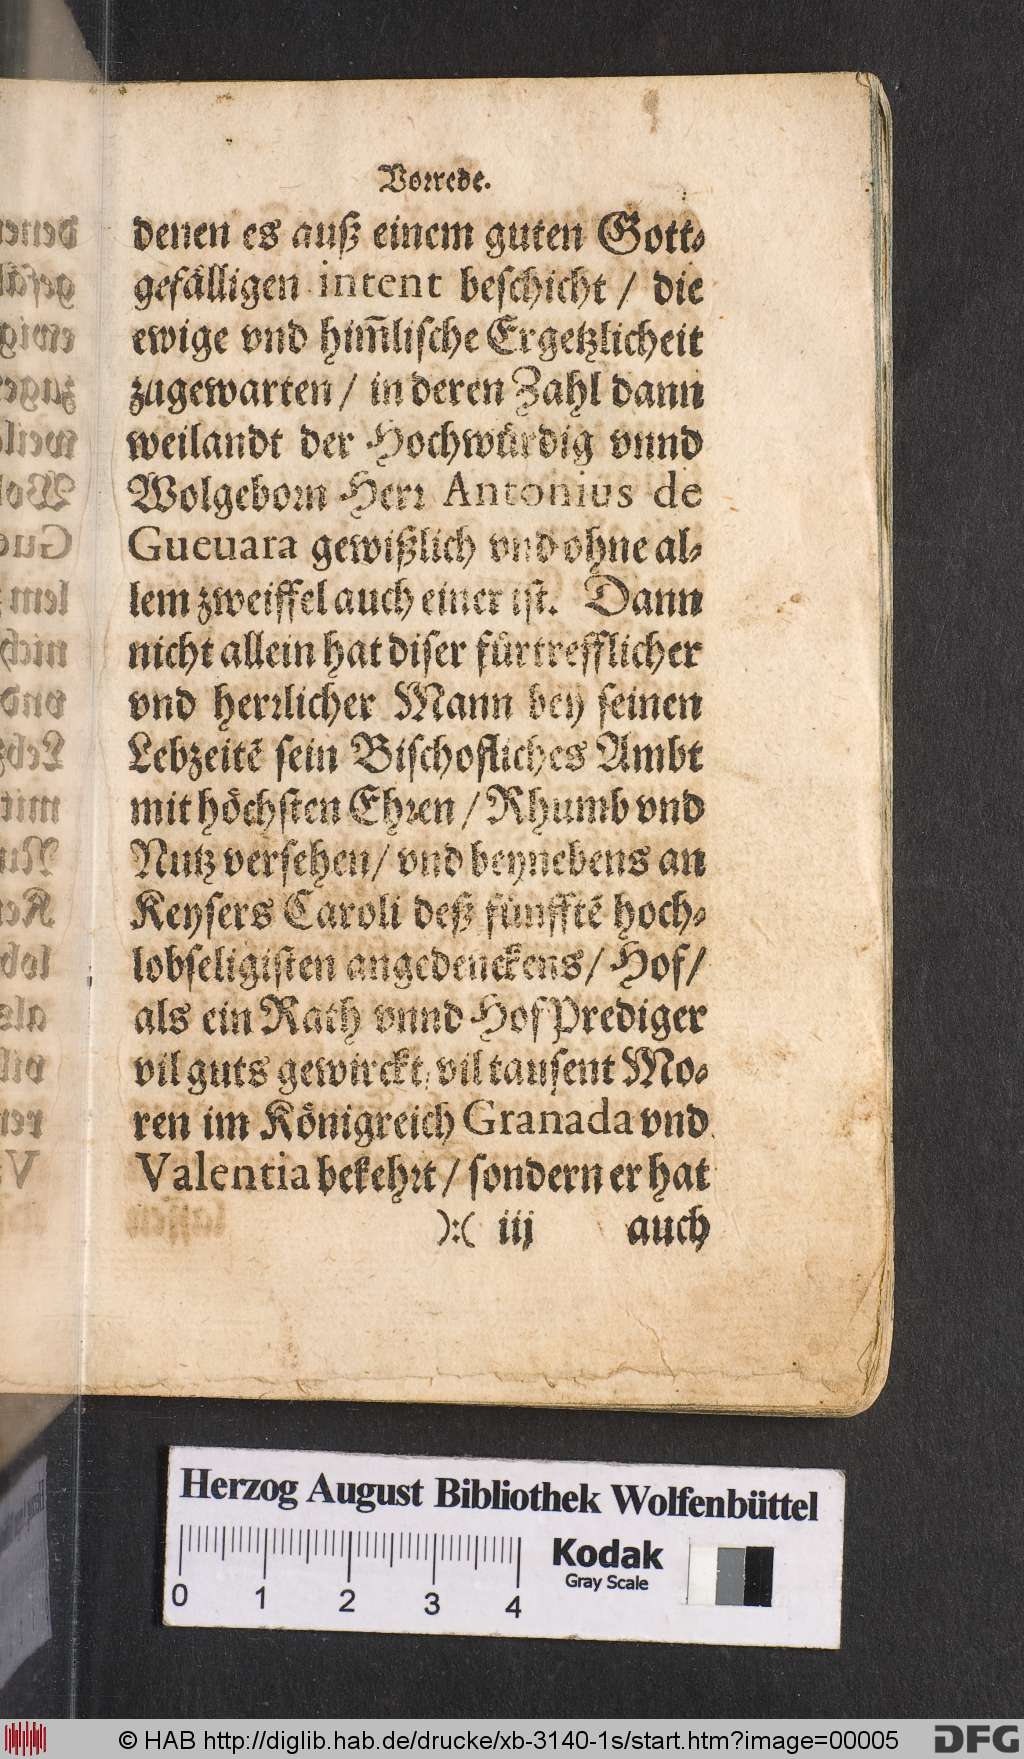 Vorrede.
denen es auß einem guten Gott-
gefälligen intent beschicht / die
ewige vnd him̃lische Ergetzlicheit
zugewarten / in deren Zahl dann
weilandt der Hochwürdig vnnd
Wolgeborn Herr Antonius de
Gueuara gewißlich vnd ohne al-
lem zweiffel auch einer ist. Dann
nicht allein hat diser fürtrefflicher
vnd herrlicher Mann bey seinen
Lebzeitē sein Bischofliches Ambt
mit höchsten Ehren / Rhumb vnd
Nutz versehen / vnd beynebens an
Keysers Caroli deß fünfftē hoch-
lobseligisten angedenckens / Hof /
als ein Rath vnnd Hof Prediger
vil guts gewirckt, vil tausent Mo-
ren im Königreich Granada vnd
Valentia bekehrt / sondern er hat
):( iij auch
Herzog August Bibliothek Wolfenbüttel
0 1 2 3 4
Kodak
Gray Scale
© HAB http://diglib.hab.de/drucke/xb-3140-1s/start.htm?image=00005
DFG